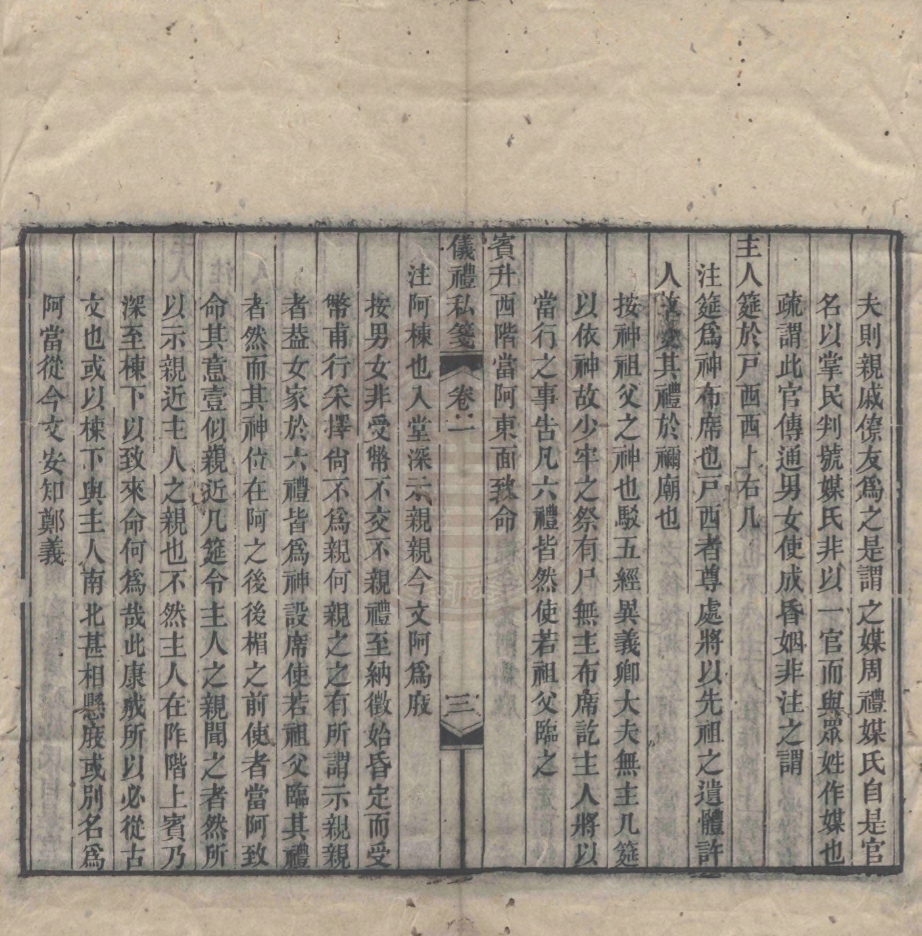 夫則親戚僚友爲之是謂之媒周禮媒氏自是官
名以掌民判號媒氏非以一官而與眾姓作媒也
疏謂此官傳通男女使成昏姻非注之謂
主人筵於戸西西上右几
注筵爲神布席也戸西者尊處將以先祖之遺體許
人故受其禮於禰廟也
按神祖父之神也駁五經異義卿大夫無主几筵
以依神故少牢之祭有尸無主布席訖主人將以
當行之事告凡六禮皆然使若祖父臨之
賓升西階當阿東面致命
儀禮私箋 卷一 三
注阿棟也入堂深示親親今文阿爲庪
按男女非受幣不交不親禮至納徵始昏定而受
幣甫行采擇尙不爲親何親之之有所謂示親親
者葢女家於六禮皆爲神設席使若祖父臨其禮
者然而其神位在阿之後後楣之前使者當阿致
命其意壹似親近几筵令主人之親聞之者然所
以示親近主人之親也不然主人在阼階上賓乃
深至棟下以致來命何爲哉此康成所以必從古
文也或以棟下與主人南北甚相懸庪或別名爲
阿當從今文安知鄭義